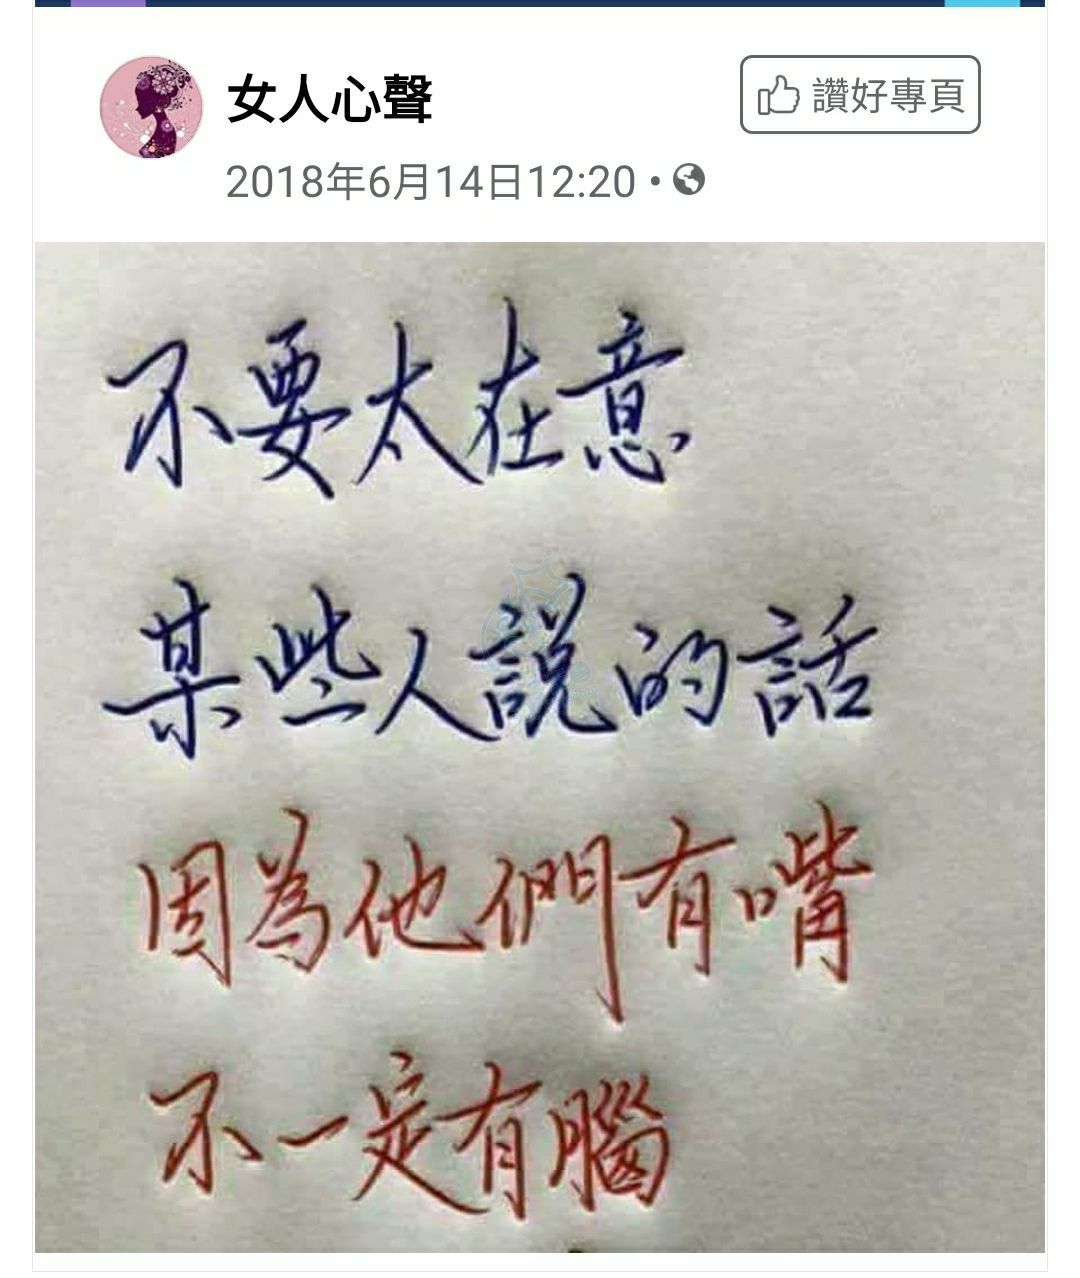 女人心聲
讚好專頁
2018年6月14日12:20 •
不要太在意
某些人說的話
因為他們有嘴
不一定有腦